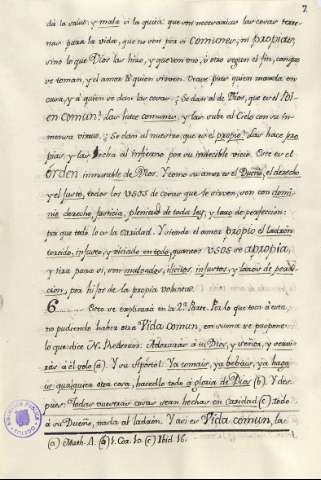 7
da la salud: y mala si la quita: que son necesarias las cosas terre-
nas para la vida, que no son por sí comunes, ni propias,
sino lo que Dios las hizo, y que son uno, ú otro segun el fin, con que
se toman, y el amor à quien sirven. Vease pues quien manda en
casa, y à quien se dan las cosas. Se dan al de Dios, que es el Bi-
en Comun? Las hace comunes, y las sube al Cielo con su in-
mensa virtud. Se dan al nuestro que es el propio? Las hace pro
pias, y las echa al infierno por su indecible vicio. Este es el
orden inmutable de Dios. Y como su amor es el Dueño, el derecho
y el justo, todos los usos de cosas que le sirven, son con domi-
nio derecho, justicia, plenitud de toda ley, y lazo de perfeccion:
por que todo lo es la caridad. Y siendo el amor propio el ladron
torcido, injusto, y viciado en todo, quantos usos se apropia,
y tira para sí, son malvados, ilicitos, injustos, y lazos de perdi-
cion, por hijos de la propia voluntad.
6 Esto se explicará en la 2ª Parte. Por lo que toca à esta,
no pudiendo haber otra Vida Comun, en suma se propone
lo que dice N. Redentor: Adorarás à tu Dios, y Señor, y servi-
rás à él solo (a). Y su Apóstol: Ya comais, ya bebais, ya hagais
qualquiera otra cosa, hacedlo todo à gloria de Dios (b). Y des-
pues: Todas vuestras cosas sean hechas en caridad (c): todo
à su Dueño, nada al ladron. Y asi es Vida comun, las
(a) Math. 4. (b) 1. Cor. 10 (c) Ibid. 16.